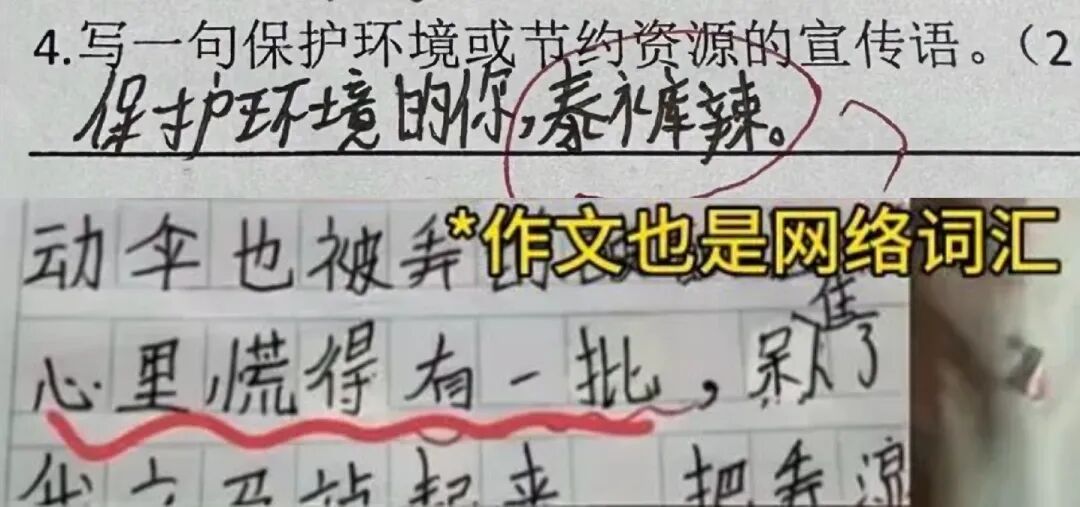 4.写一句保护环境或节约资源的宣传语。（2
保护环境的你,泰裤辣。
*作文也是网络词汇
动伞也被弄
心里慌得有一批，呆住了
站起来 把弄